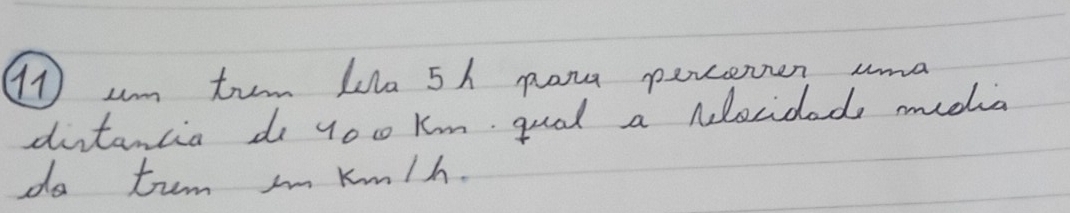 11 um trem leva 5 h para percorrer uma
distancia de 400 Km. qual a velocidade media
do trem em Km/h.